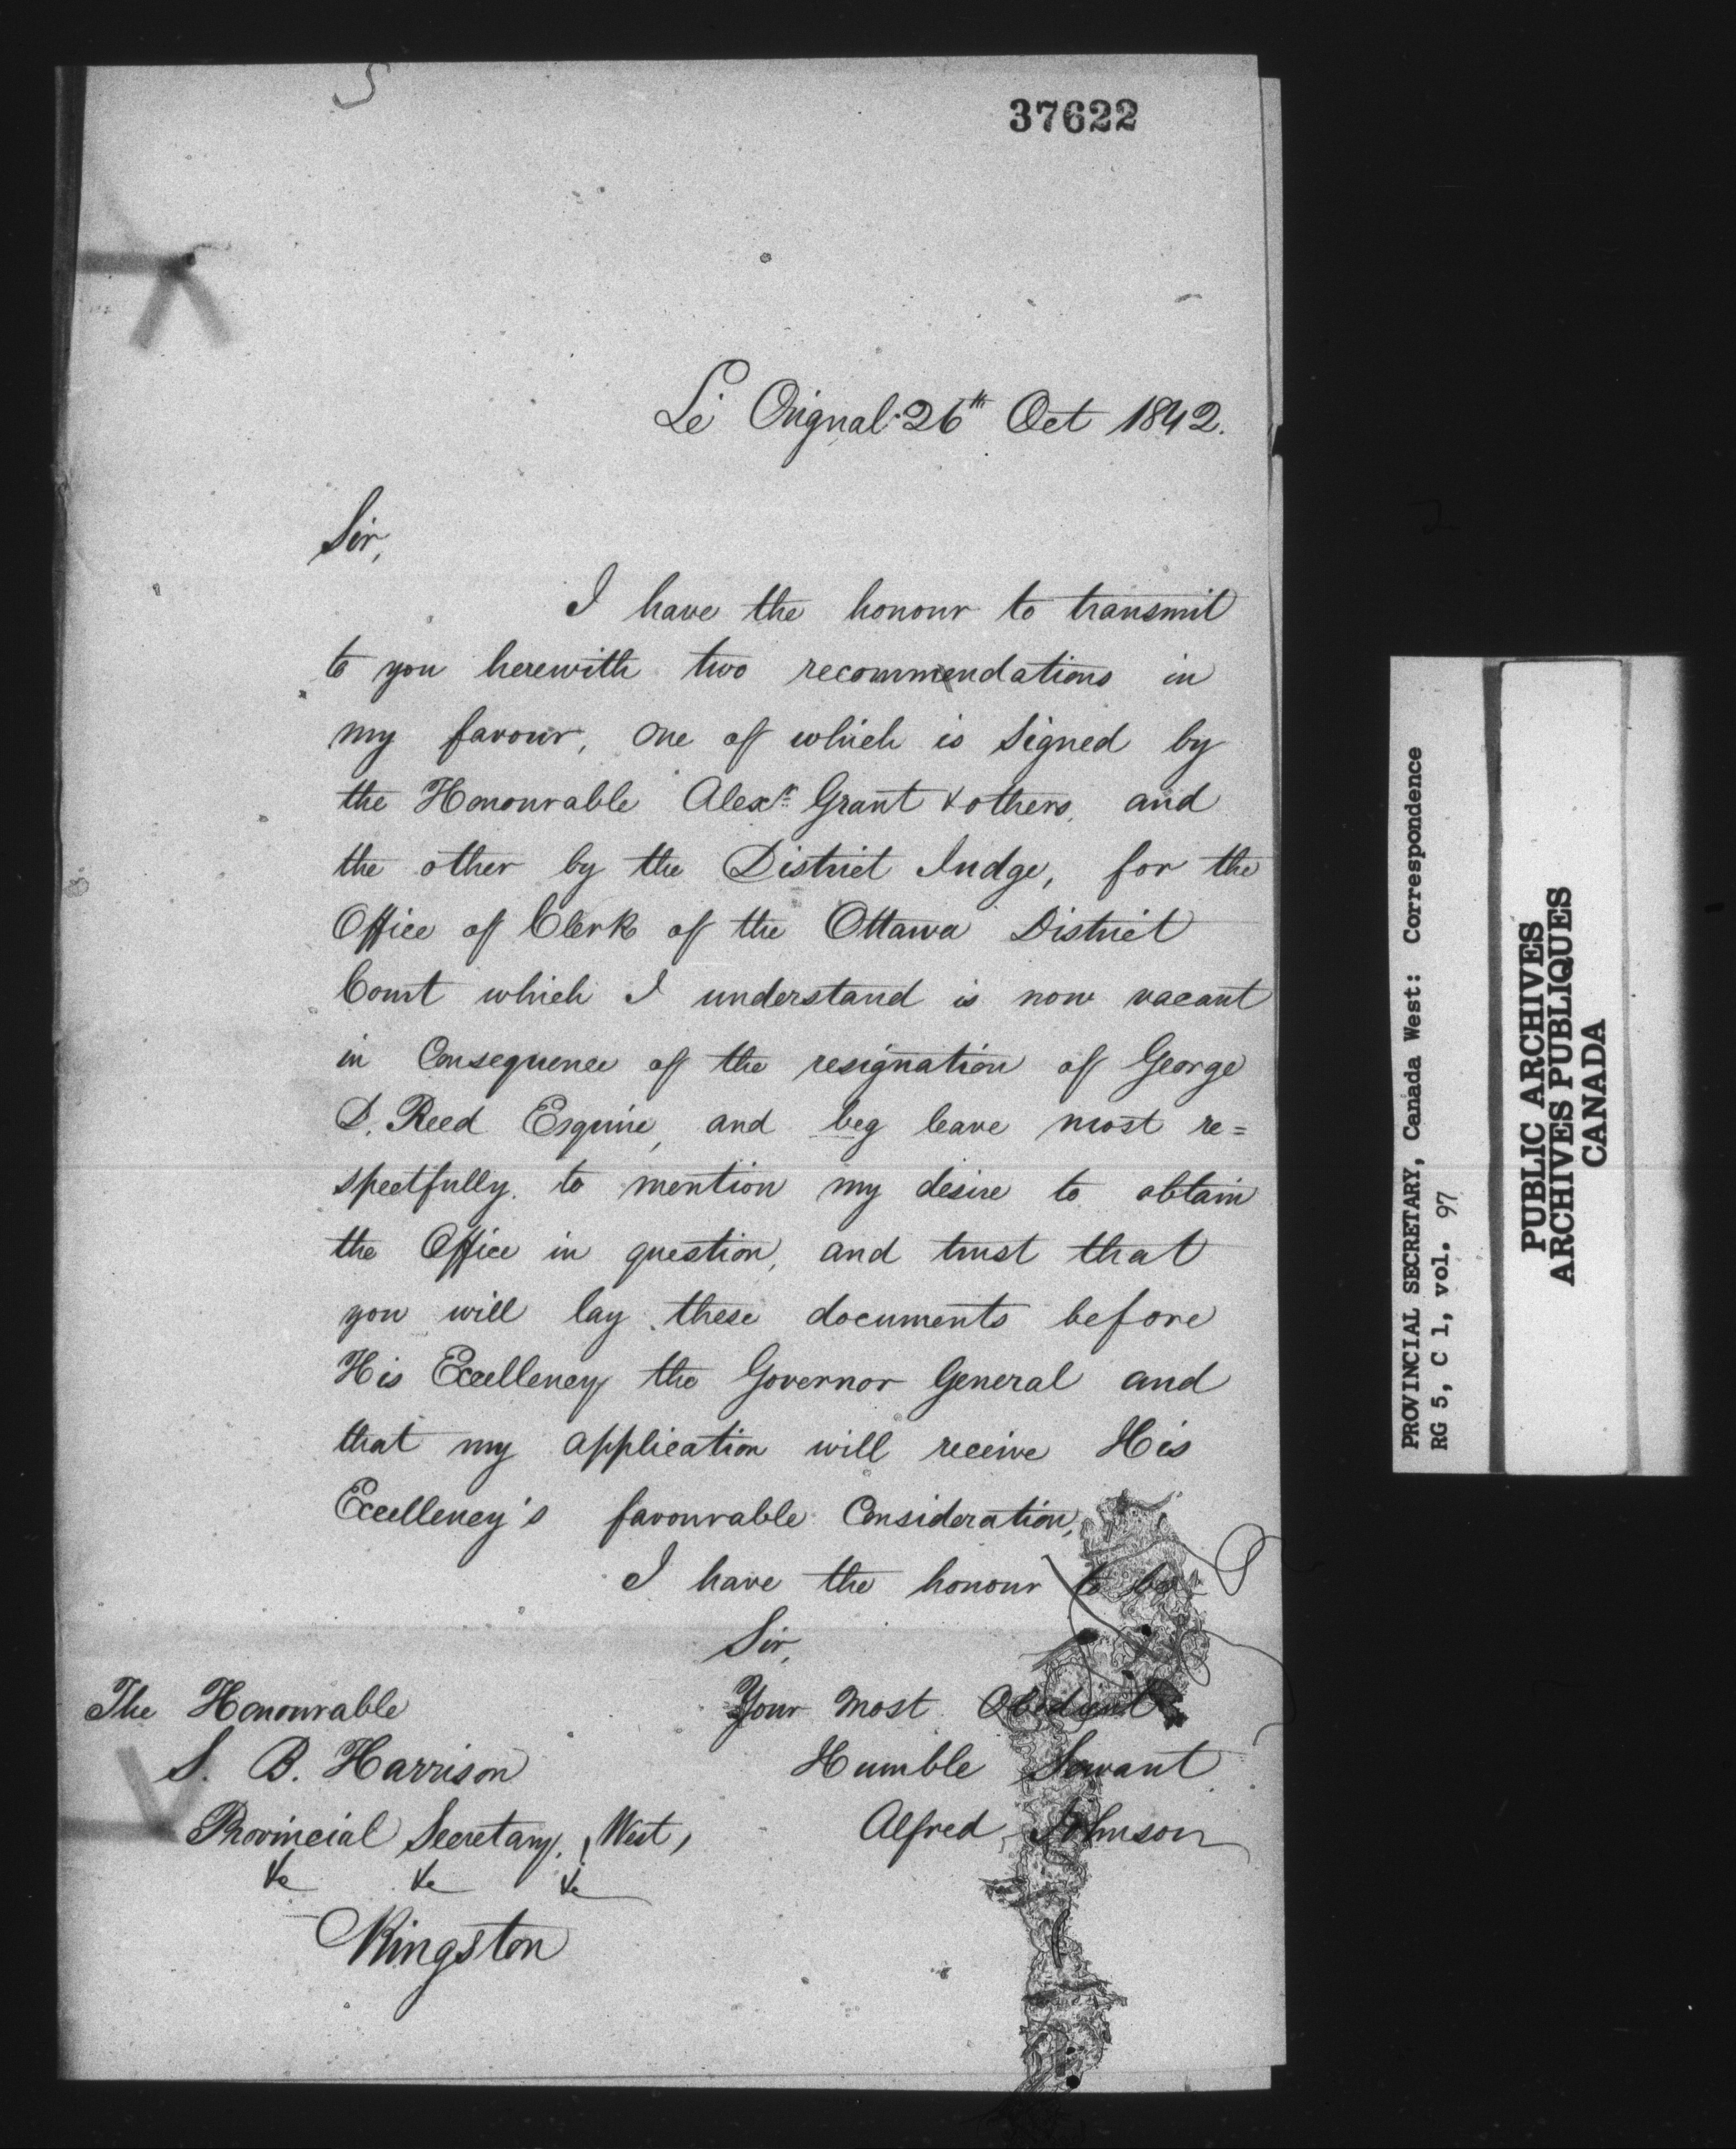 37622
Le Orignal 26th Oct 1842.
Sir,
I have the honour to transmit
to you herewith two recommendations in
my favour, one of which is signed by
the Honourable Alexr. Grant & others, and
the other by the District Judge, for the
Office of Clerk of the Ottawa District
Court which I understand is now vacant
in Consequence of the resignation of George
D. Reed Esquire, and beg leave most re=
spectfully to mention my desire to obtain
the Office in question, and trust that
you will lay these documents before
His Excellency the Governor General and
that my application will receive His
Excellency's favourable Consideration,
I have the honour to be
Sir,
Your most Obedient
Humble Servant
Alfred Johnson
The Honourable
S. B. Harrison
Provincial Secretary, West,
&c &c &c
Kingston
PROVINCIAL SECRETARY, Canada West: Correspondence
RG 5, C 1, vol. 97
PUBLIC ARCHIVES
ARCHIVES PUBLIQUES
CANADA